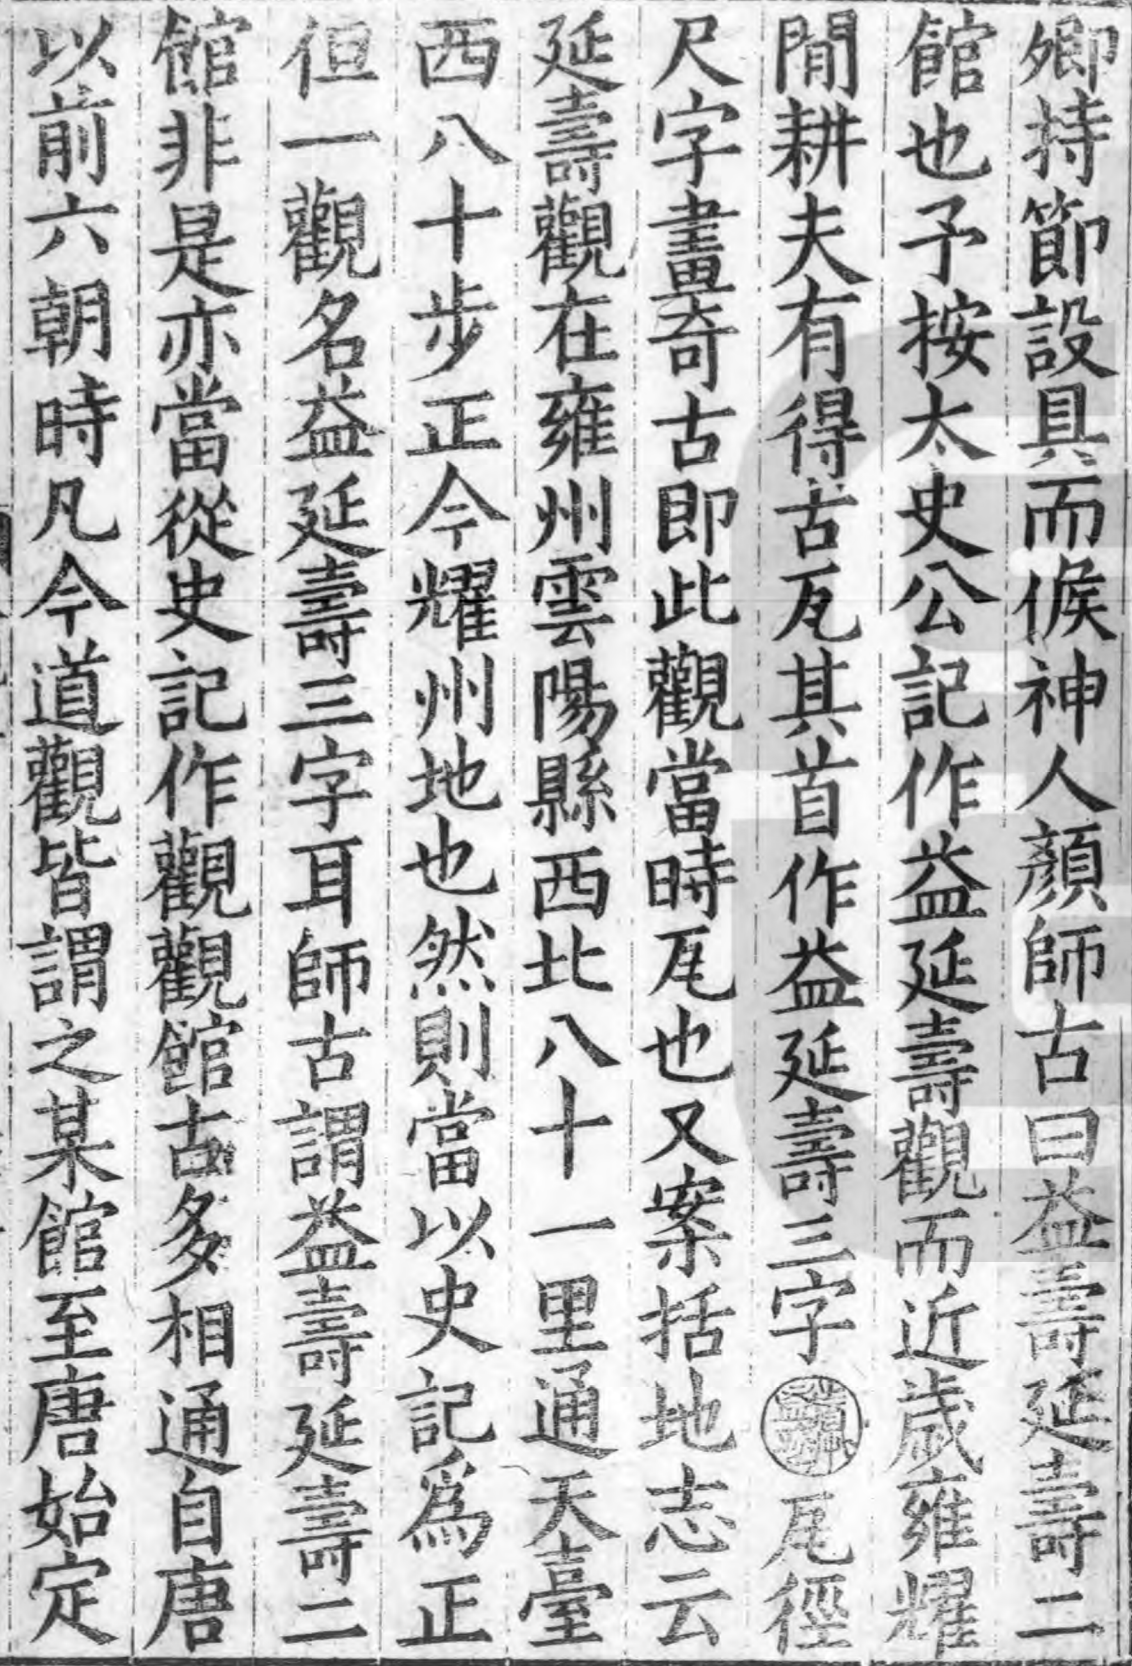 卿持節設具而候神人顏師古曰益壽延壽二
館也予按太史公記作益延壽觀而近歲雍耀
間耕夫有得古瓦其首作益延壽三字瓦徑
尺字畫奇古即此觀當時瓦也又案括地志云
延壽觀在雍州雲陽縣西北八十一里通天臺
西八十步正今耀州地也然則當以史記爲正
但一觀名益延壽三字耳師古謂益壽延壽二
館非是亦當從史記作觀觀館古多相通自唐
以前六朝時凡今道觀皆謂之某館至唐始定